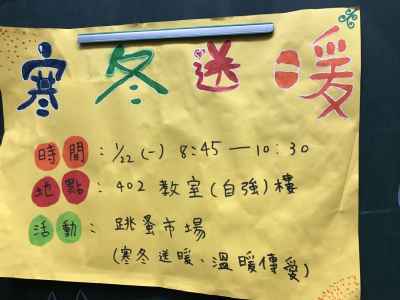 寒冬送暖
時間：1/22 (一) 8:45 — 10:30
地點：402 教室 (自強) 樓
活動：跳蚤市場
(寒冬送暖、溫暖傳愛)